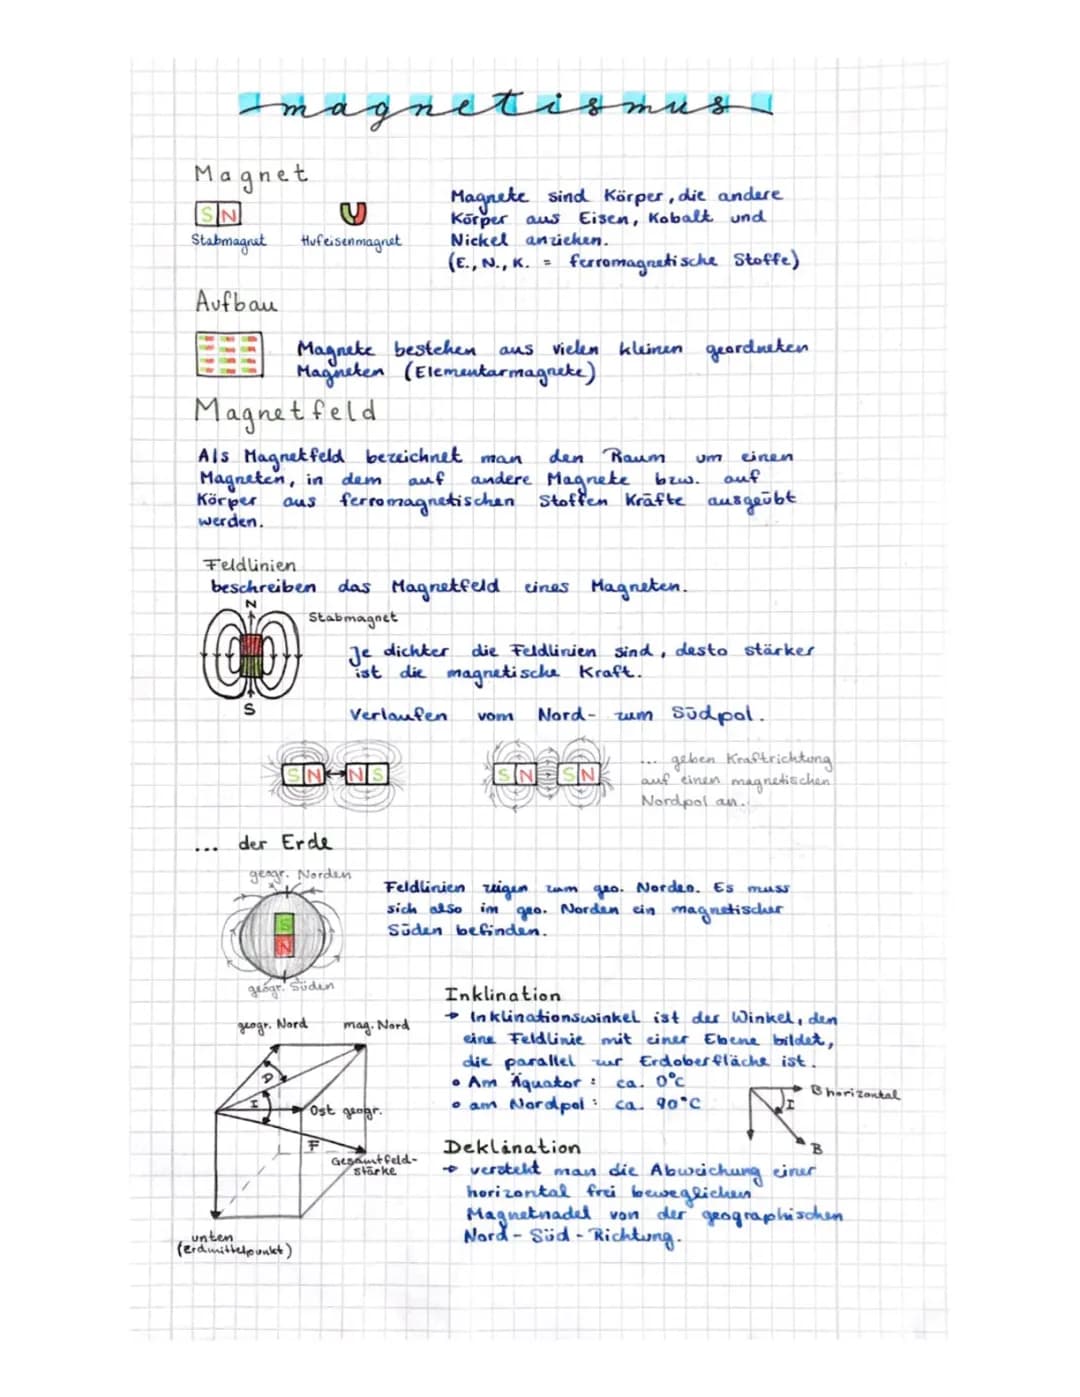 magnetismus
Magnet
S N
Stabmagnet Hufeisenmagnet
Magnete sind Körper, die andere
Körper aus Eisen, Kobalt und
Nickel anziehen.
(E., N., K. = ferromagnetische Stoffe)
Aufbau
Magnete bestehen aus vielen kleinen geordneten
Magneten (Elementarmagnete)
Magnetfeld
Als Magnetfeld bezeichnet man den Raum um einen
Magneten, in dem auf andere Magnete bzw. auf
Körper aus ferromagnetischen Stoffen Kräfte ausgeübt
werden.
Feldlinien
beschreiben das Magnetfeld eines Magneten.
N
Stabmagnet
S
Je dichter die Feldlinien sind, desto stärker
ist die magnetische Kraft.
Verlaufen vom Nord- zum Südpol.
S N N S
S N S N
... geben Kraftrichtung
auf einen magnetischen
Nordpol an.
... der Erde
geogr. Norden
S
N
geogr. Süden
Feldlinien zeigen zum geo. Norden. Es muss
sich also im geo. Norden ein magnetischer
Süden befinden.
geogr. Nord mag. Nord
D
I
Ost geogr.
F
Gesamtfeld-
stärke
unten
(Erdmittelpunkt)
Inklination
→ Inklinationswinkel ist der Winkel, den
eine Feldlinie mit einer Ebene bildet,
die parallel zur Erdoberfläche ist.
• Am Äquator: ca. 0°C
• am Nordpol: ca. 90°C
B horizontal
I
B
Deklination
→ versteht man die Abweichung einer
horizontal frei beweglichen
Magnetnadel von der geographischen
Nord-Süd-Richtung.